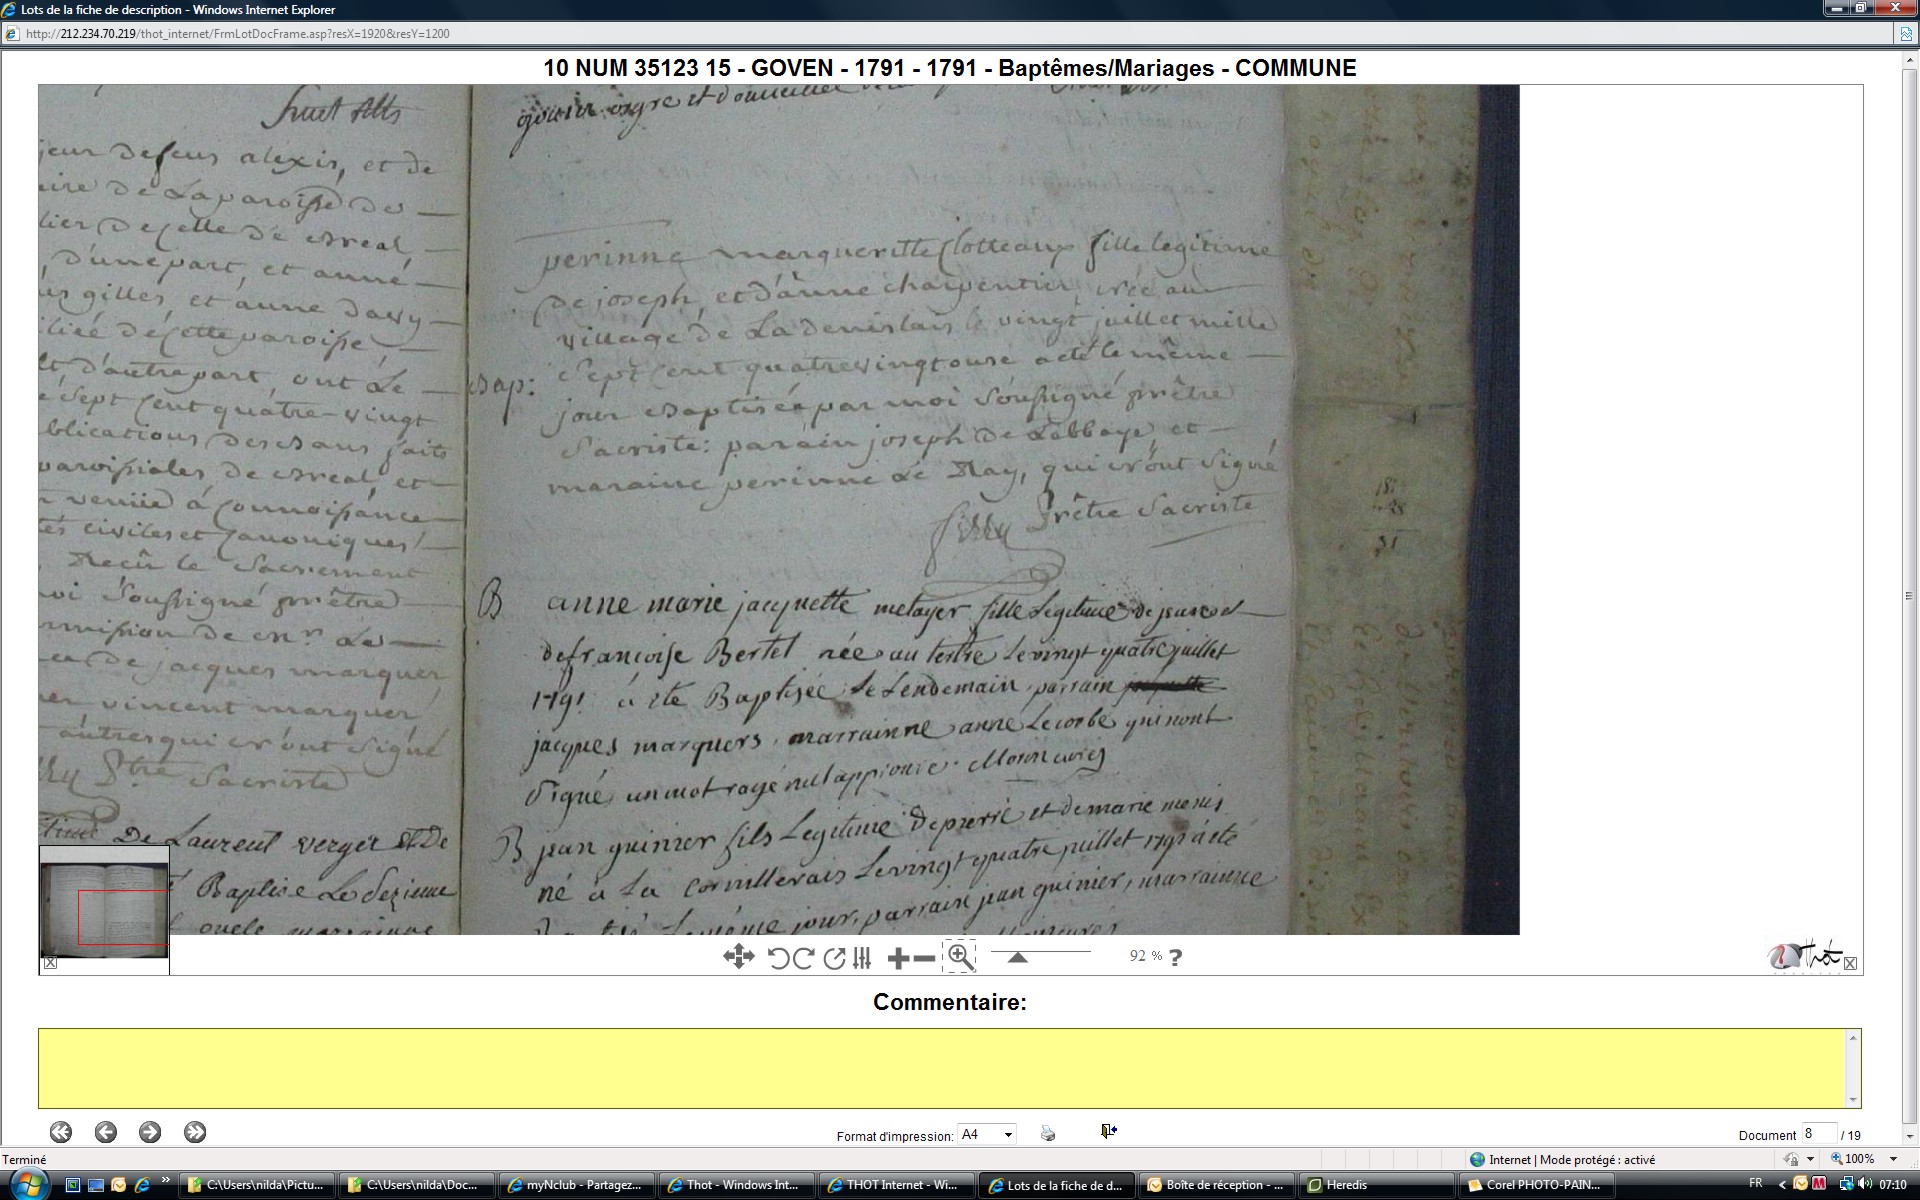 Lots de la fiche de description - Windows Internet Explorer
http://212.234.70.219/thot_internet/FrmLotDocFrame.asp?resX=1920&resY=1200
10 NUM 35123 15 - GOVEN - 1791 - 1791 - Baptêmes/Mariages - COMMUNE
alexis, et de
de Laparoisse de
de Cette de Breal
d'une part, et anne
gilles, et anne davy
de Cette paroisse
d'autre part, ont Le
Sept Cent quatre-vingt
blications des Bans faits
paroissiales de Breal et
venüe à Connoissance
civiles et Canoniques
Reçû le Sacrement
moi Soussigné prêtre
mission de mr Le
de jacques marquer
vincent marquer
autres qui n'ont Signé
ptre Sacriste
De Laurent verger et De
Baptisé Le
oncle marrainne
perinne margueritte Clotteaux fille legitime
de joseph, et d'anne charpentier, née au
village de La denislais le vingt juillet mille
Bap: Sept Cent quatrevingt onze a eté le même
jour Baptisée par moi Soussigné prêtre
Sacriste: parain joseph De Labbaye et
maraine perinne Le Ray, qui n'ont Signé
prêtre Sacriste
B anne marie jacquette metayer fille Legitime de jean et
de françoise Bertel née au tertre Le vingt quatre juillet
1791 à été Baptisée Le Lendemain, parrain
jacques marquers, marrainne anne Lecorbé qui nont
Signé, un mot rayé nul
B jean guinier fils Legitime De pierre et de marie menis
né à La Cornillerais Le vingt quatre juillet 1791 à été
Baptisé Le même jour, parrain jean guinier, marrainne
92 % ?
Thot
Commentaire:
Format d'impression: A4
Document 8 / 19
Terminé
Internet | Mode protégé : activé
100%
C:\Users\nilda\Pictu...
C:\Users\nilda\Doc...
myNclub - Partagez...
Thot - Windows Int...
THOT Internet - Wi...
Lots de la fiche de d...
Boîte de réception - ...
Heredis
Corel PHOTO-PAIN...
FR
07:10